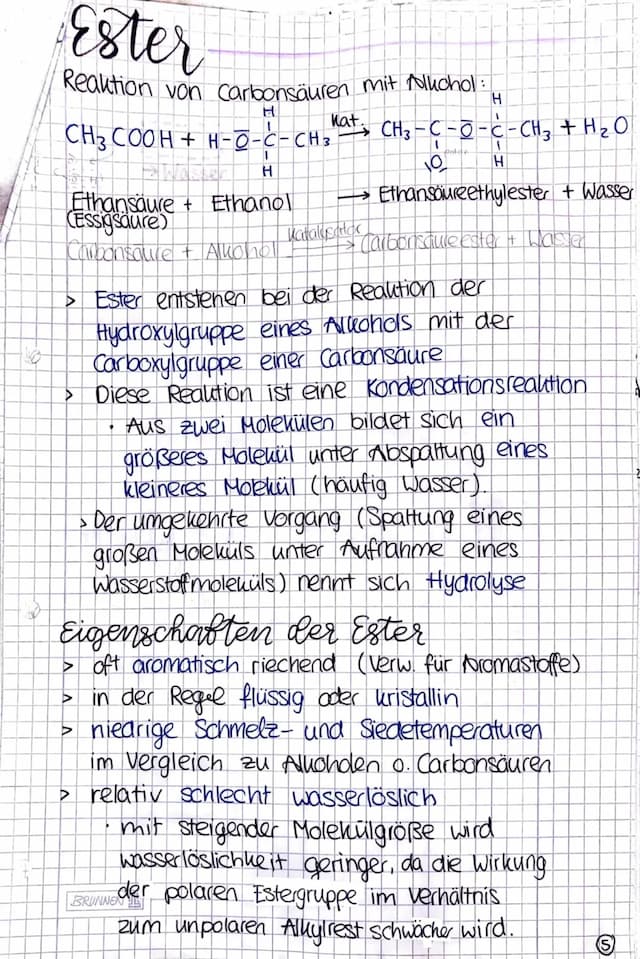 Ester
Reaktion von Carbonsäuren mit Alkohol:
H H
CH3COOH + H-O-C-CH3 Kat. → CH3-C-O-C-CH3 + H2O
H |O| H
→ Wasser
Ethansäure + Ethanol → Ethansäureethylester + Wasser
(Essigsäure)
Carbonsäure + Alkohol Katalysator → Carbonsäureester + Wasser
> Ester entstehen bei der Reaktion der
Hydroxylgruppe eines Alkohols mit der
Carboxylgruppe einer Carbonsäure
> Diese Reaktion ist eine Kondensationsreaktion
• Aus zwei Molekülen bildet sich ein
größeres Molekül unter Abspaltung eines
kleineres Molekül (häufig Wasser).
> Der umgekehrte Vorgang (Spaltung eines
großen Moleküls unter Aufnahme eines
Wasserstoffmoleküls) nennt sich Hydrolyse
Eigenschaften der Ester
> oft aromatisch riechend (Verw. für Aromastoffe)
> in der Regel flüssig oder kristallin
> niedrige Schmelz- und Siedetemperaturen
im Vergleich zu Alkoholen o. Carbonsäuren
> relativ schlecht wasserlöslich
• mit steigender Molekülgröße wird
wasserlöslichkeit geringer, da die Wirkung
der polaren Estergruppe im Verhältnis
BRUNNEN
zum unpolaren Alkylrest schwächer wird.
5